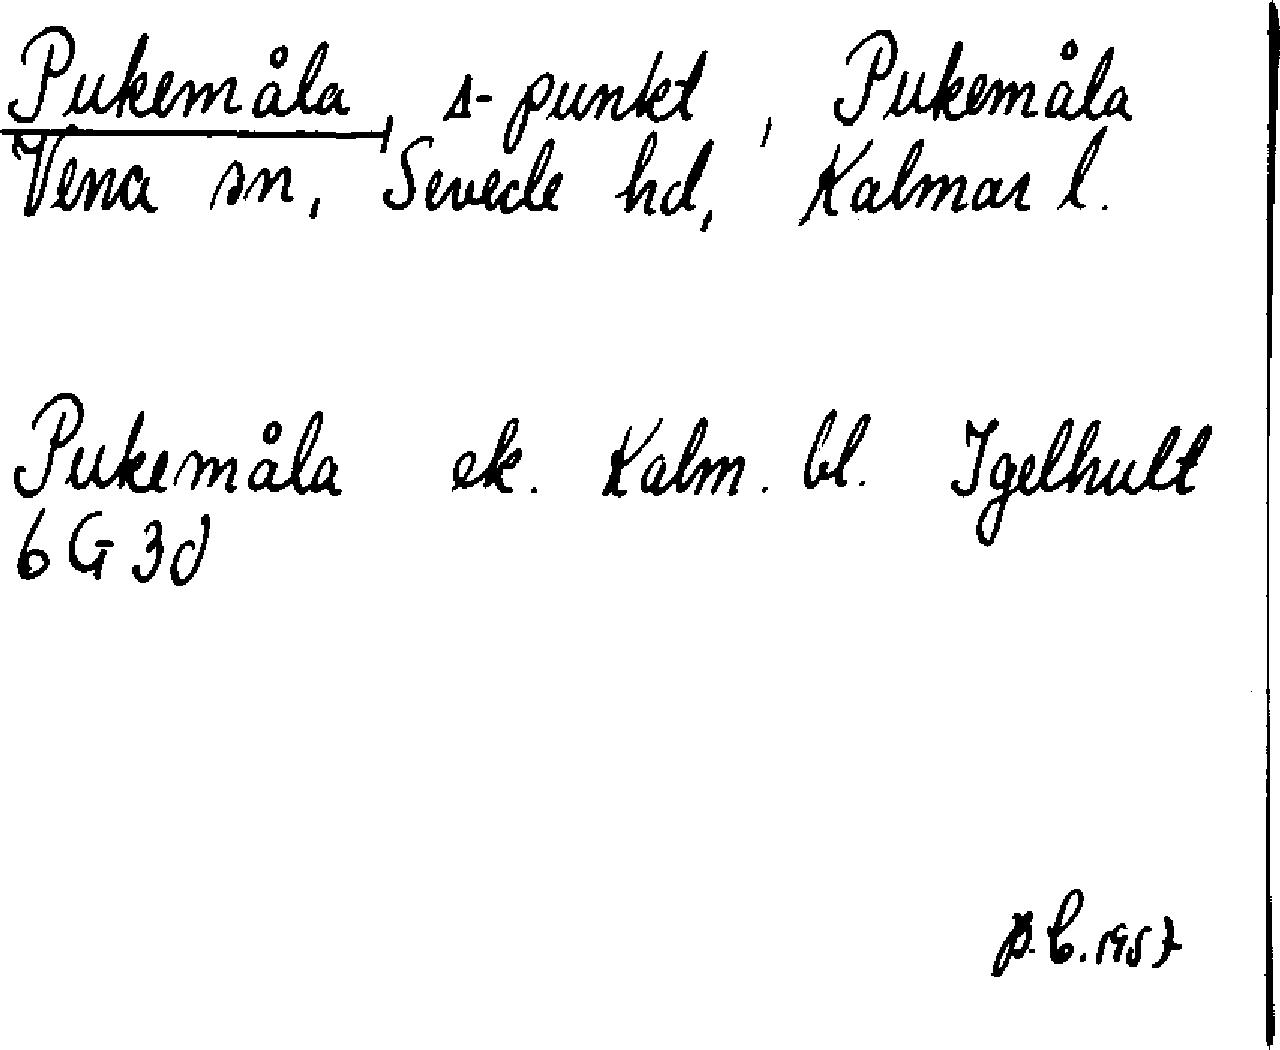 Pukemåla, s-punkt, Pukemåla
Vena sn, Sevede hd, Kalmar l.
Pukemåla ek. Kalm. bl. Igelhult
6 G 3d
B.C. 1957